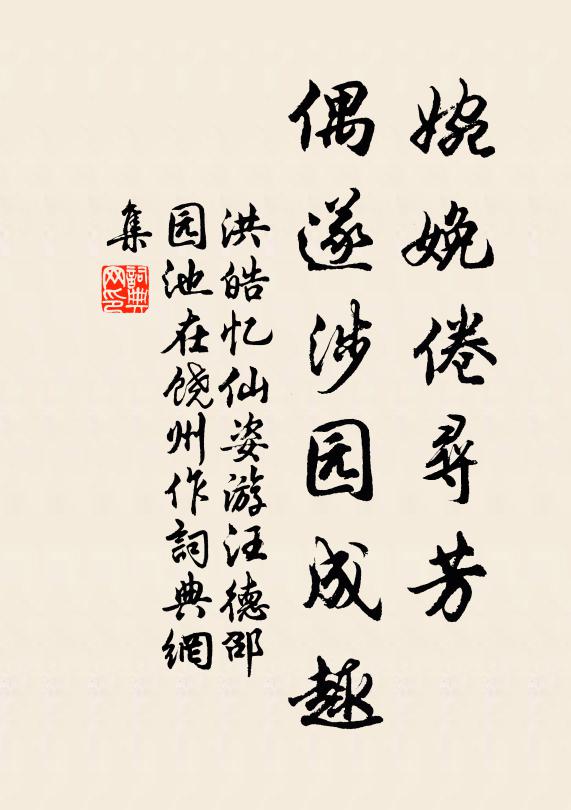 婉娩倦尋芳
偶遂涉园成趣
洪皓忆仙姿游汪德邵
园池在饶州作詞典網
集
詞典
网印